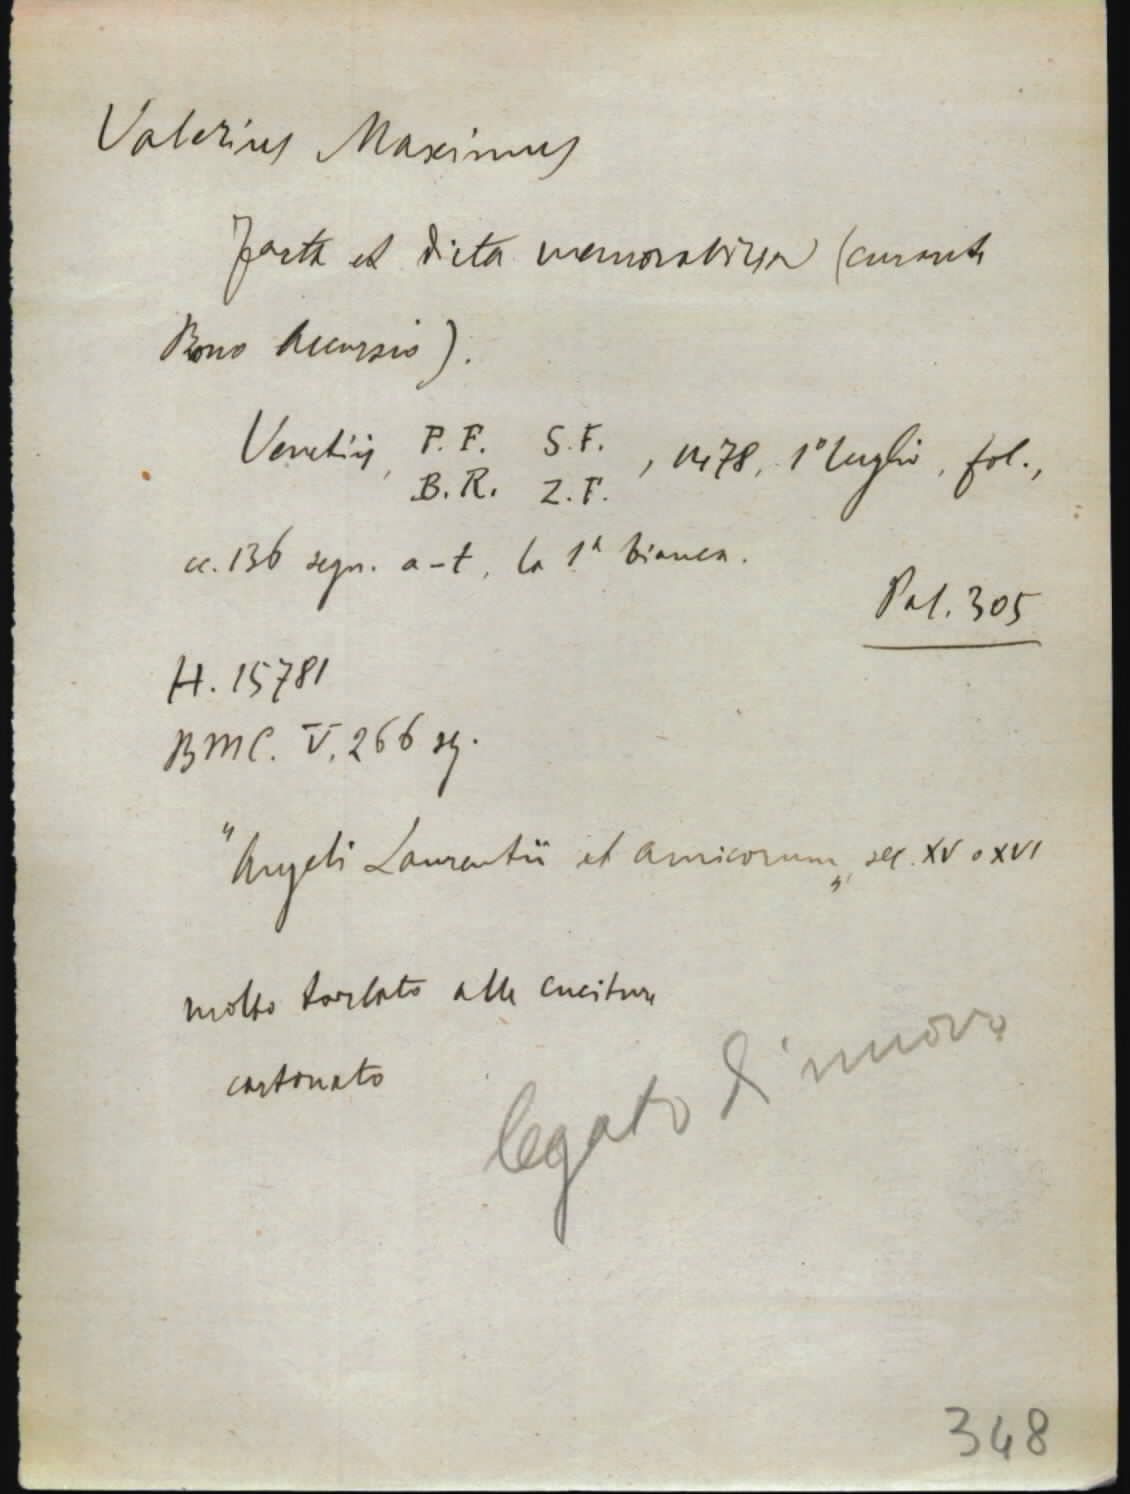 Valerius Maximus
Facta et dicta memorabilia (curante
Bono Accursio).
Venetiis, P.F. S.F. , 1478, 1° luglio, fol.,
B.R. Z.F.
cc. 136 segn. a-t, la 1ª bianca.
Pal. 305
H. 15781
BMC. V. 266 sg.
"Angeli Laurentii et amicorum", sec. XV o XVI
molto tarlato alle cuciture
cartonato
legato di nuovo
348